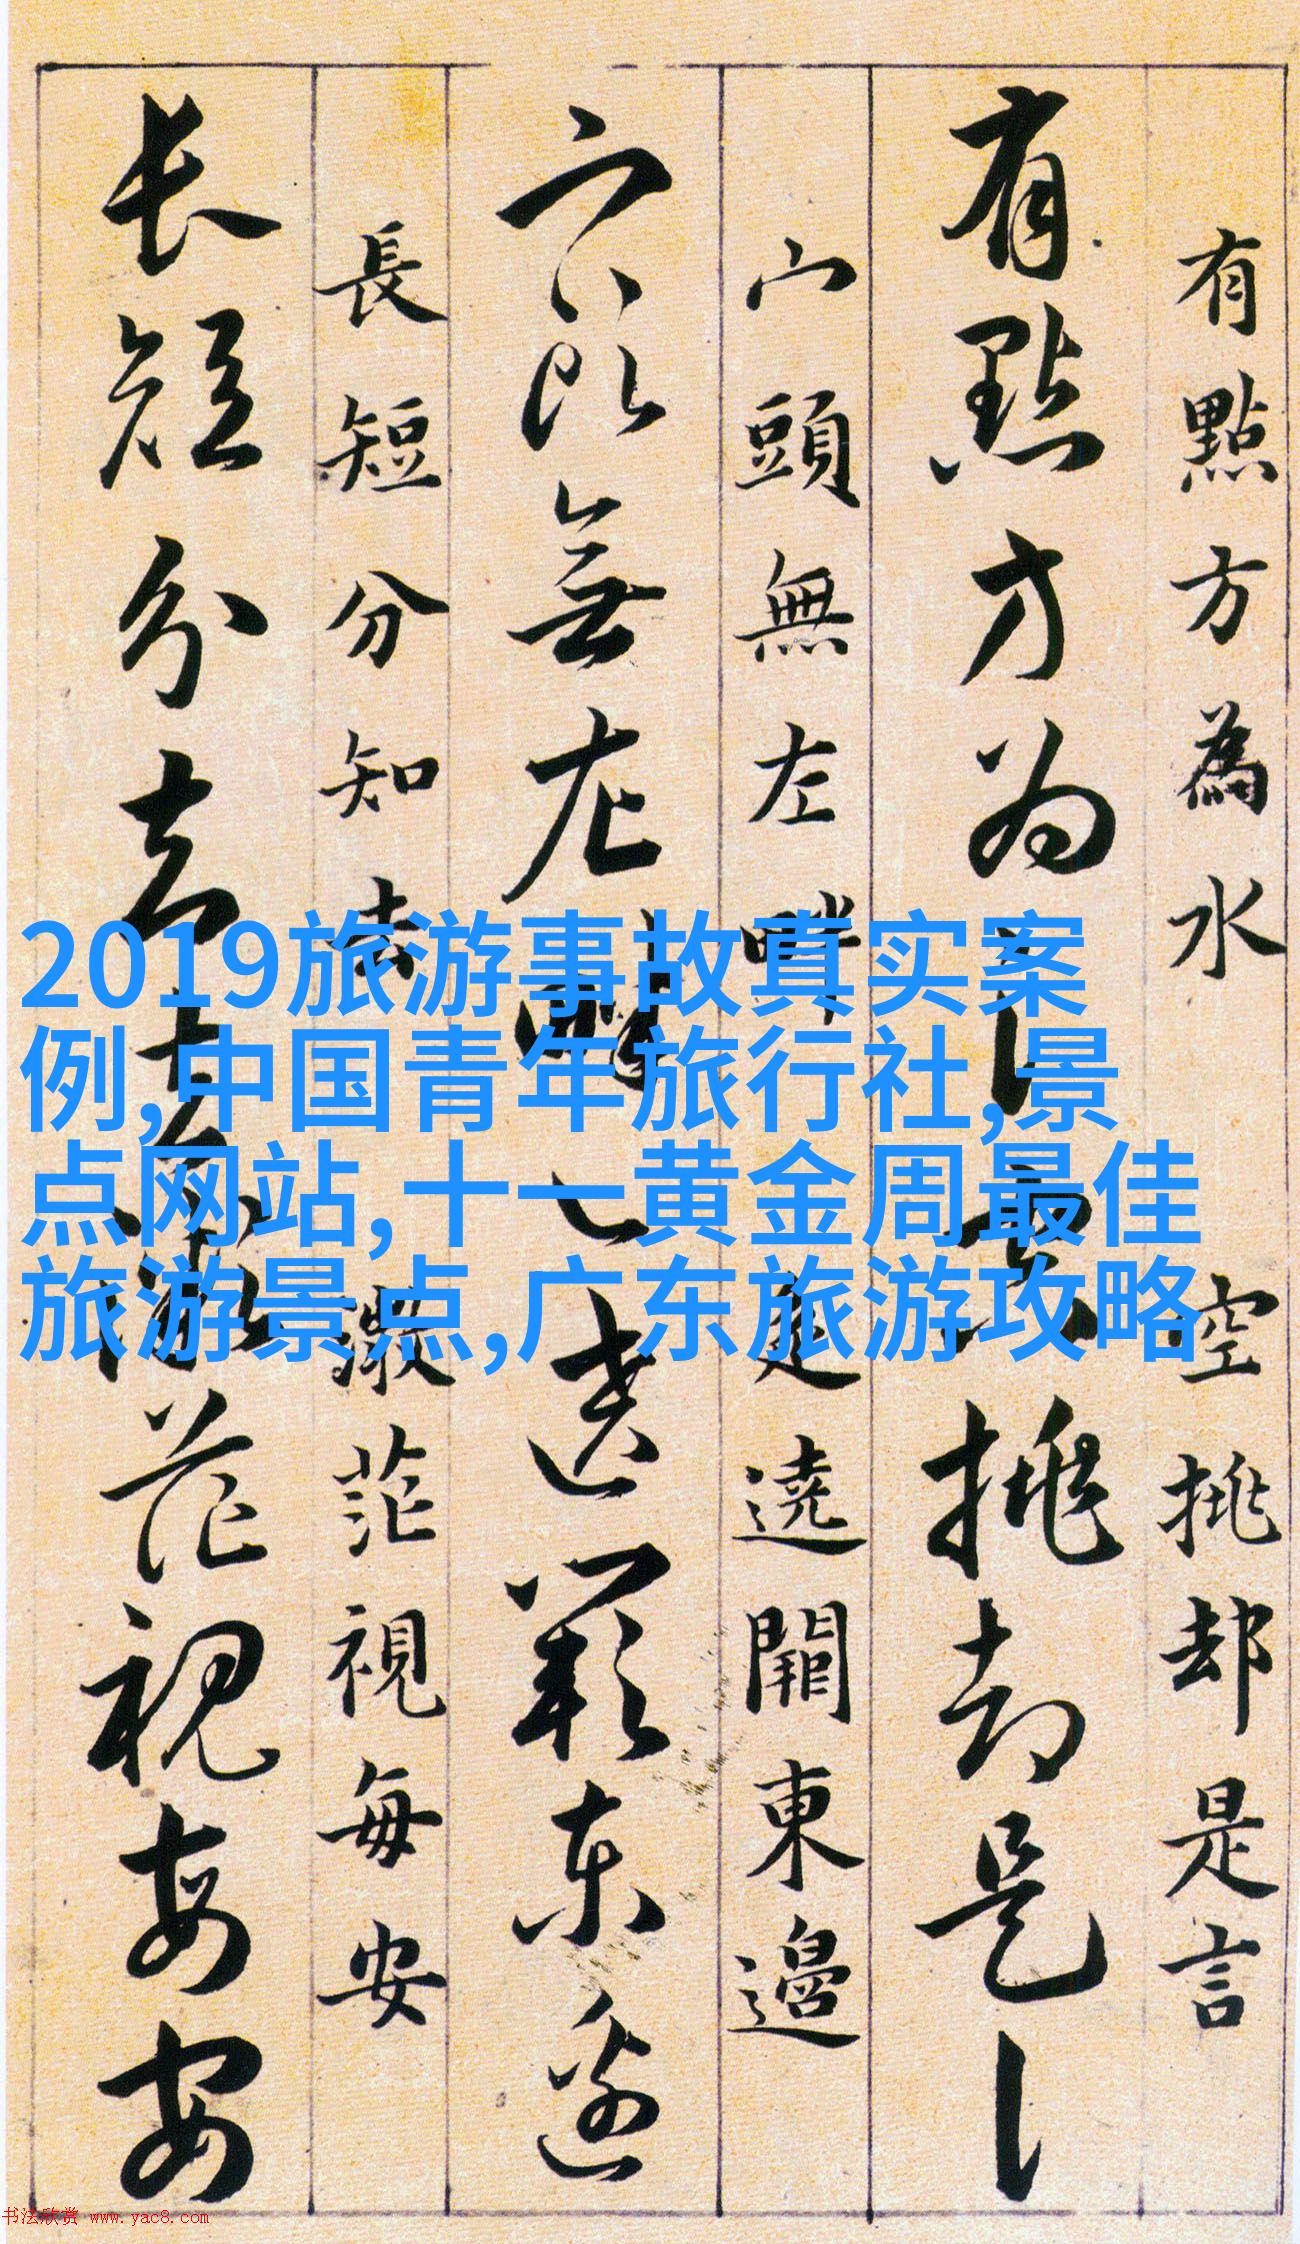 有點方為水空挑却是言
有點方为挑却是
宀頭無左畔遶東邊
宀頭無左畔辶遶東邊
長短分知去微茫視每安
长短分去微茫視每安
2019旅游事故真实案
例,中国青年旅行社,景
点网站,十一黄金周最佳
旅游景点,广东旅游攻略
书法欣赏 www.yac8.com